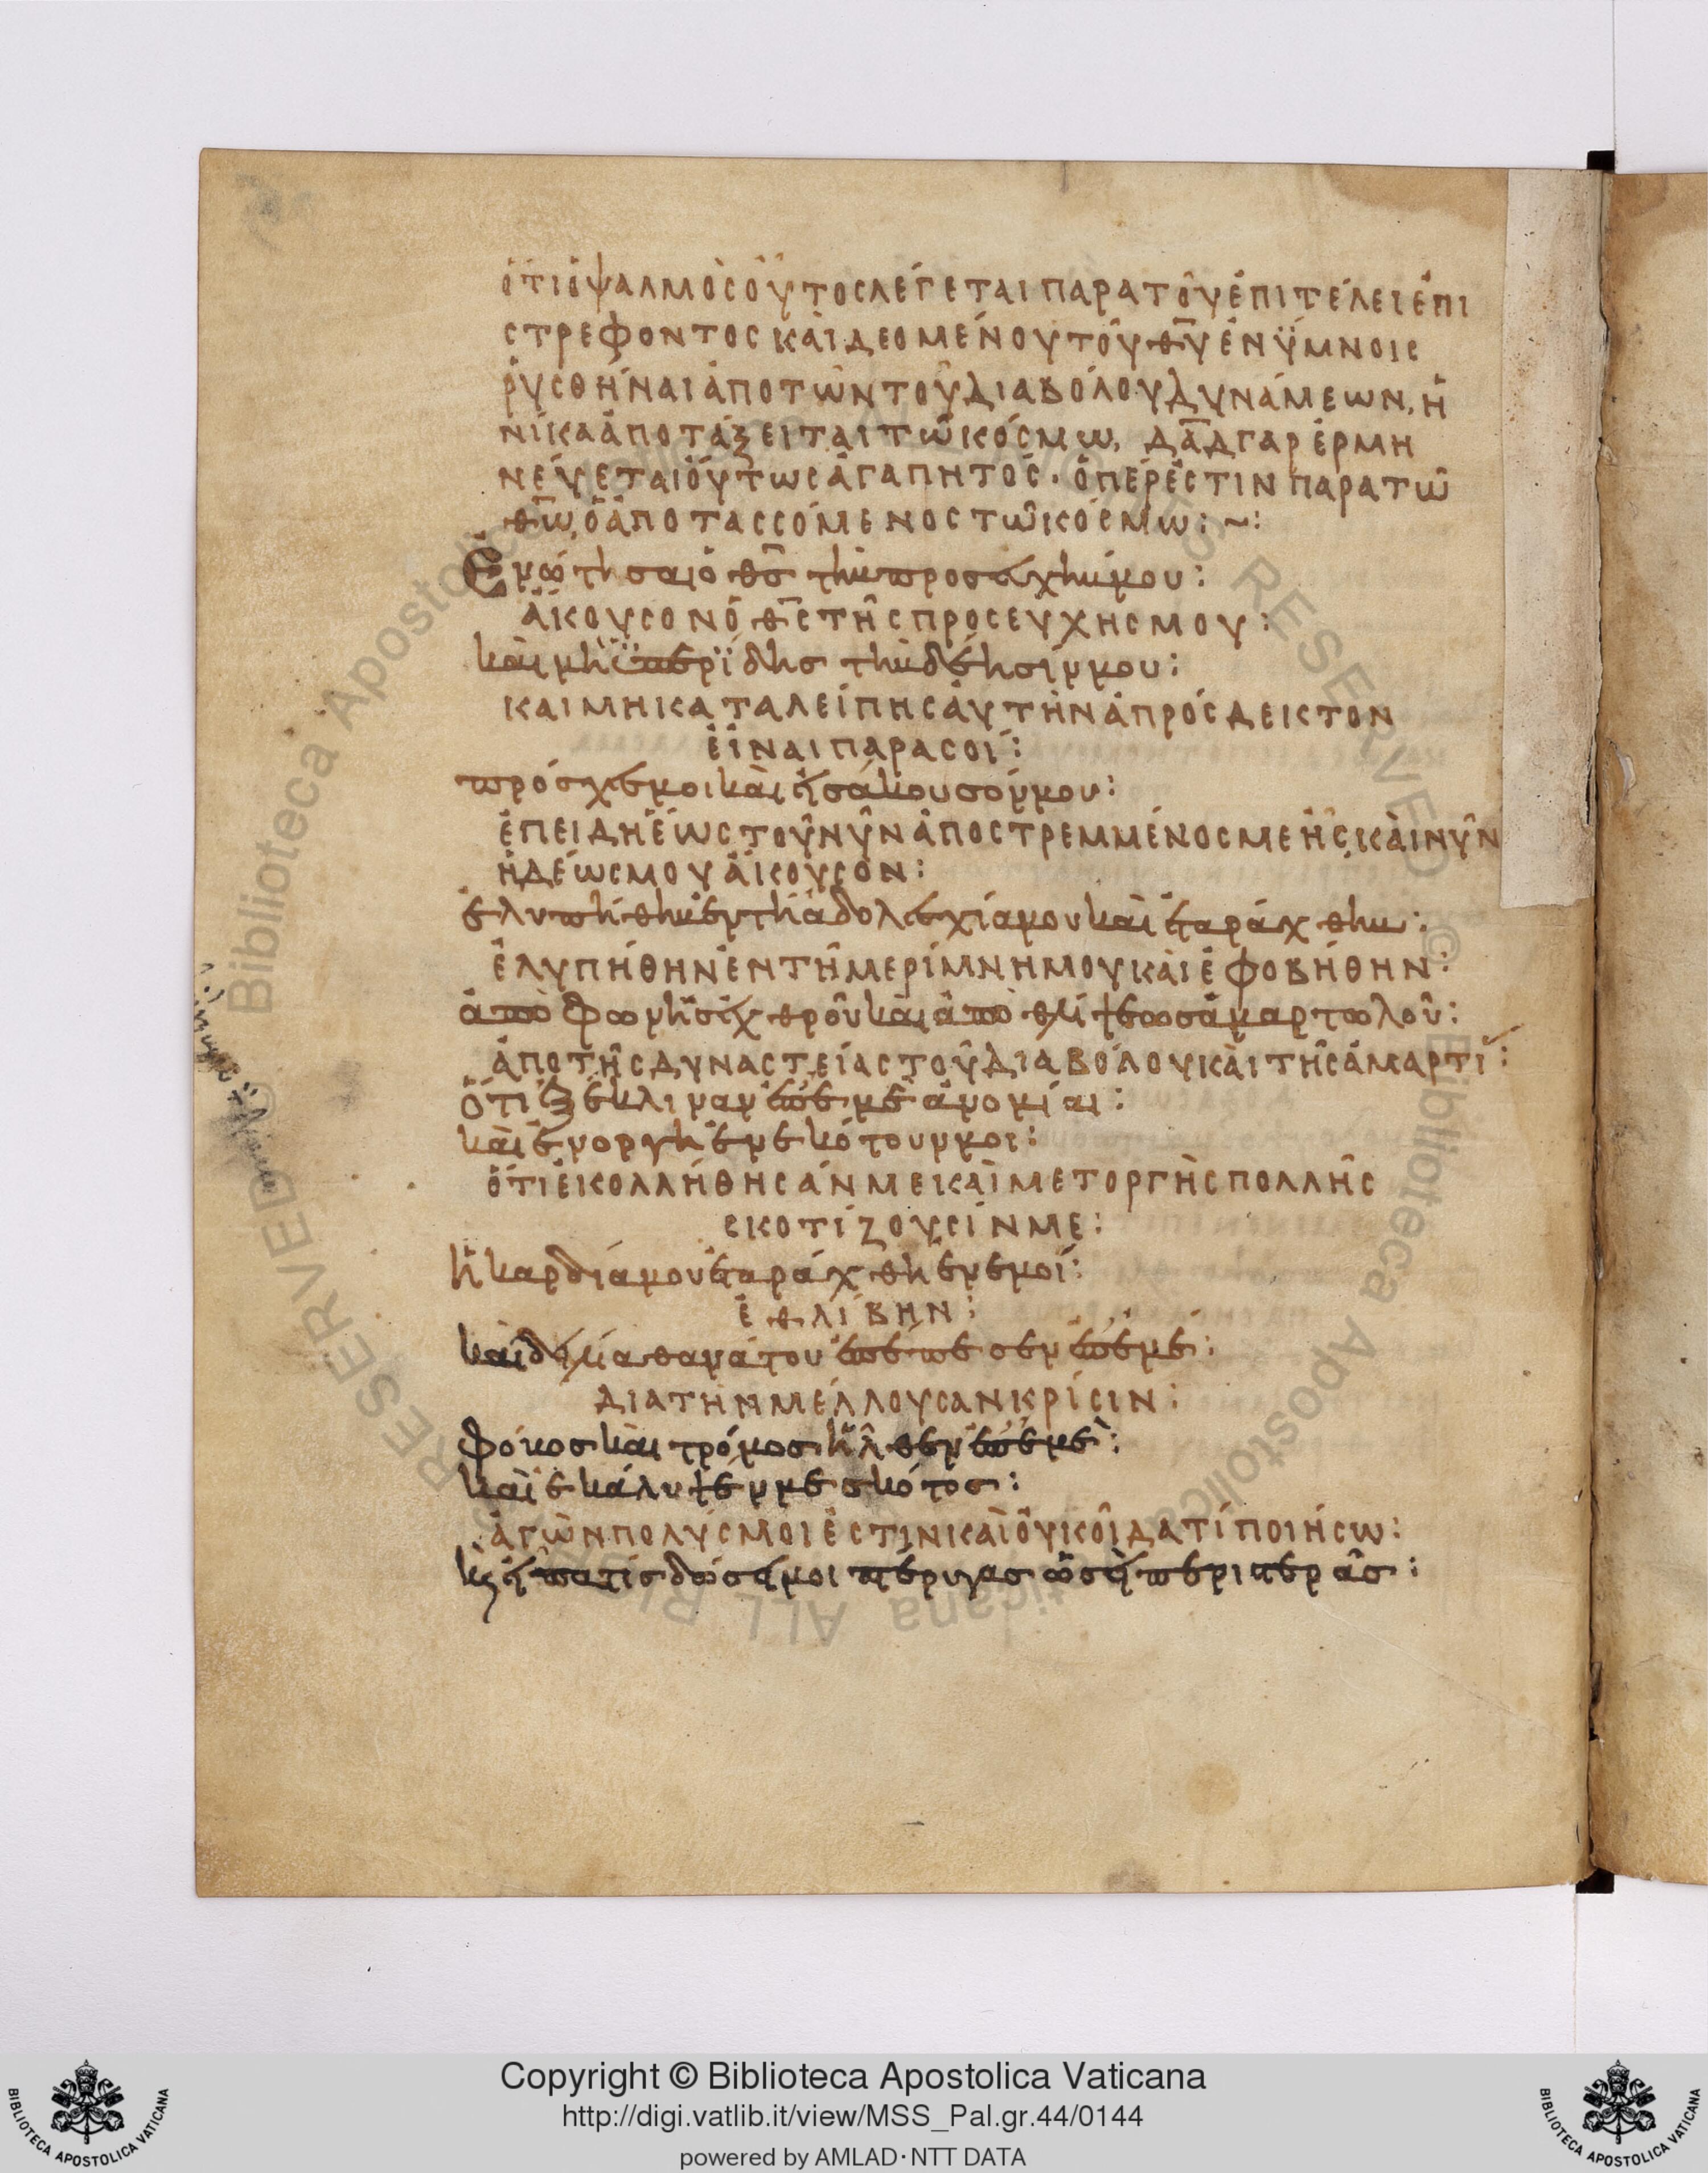 ὅτι ὁ ψαλμὸς οὗτος λέγεται παρὰ τοῦ ἐπὶ τέλει ἐπι
στρέφοντος καὶ δεομένου τοῦ θ̅υ̅ ἐν ὕμνοις
ῥυσθῆναι ἀπὸ τῶν τοῦ διαβόλου δυνάμεων, ἡ
νίκα ἀποτάξειται τῶ κόσμω, δ̅α̅δ̅ γαρ ἑρμη
νεύεται οὕτως ἀγαπητός· ὅπερ ἐστιν παρα τῶ
θ̅ω̅, ὁ ἀποτασσόμενος τῶ κόσμω:~:
Ἐνώτησαι ὁ θ̅ς̅ τὴν προσευχήν μου:
ἄκουσον ὁ θ̅ς̅ τῆς προσευχης μου:
καὶ μὴ ὑπερίδης τὴν δέησίν μου:
και μη καταλείπης αὐτὴν ἀπρόσδεκτον
εἶναι παρα σοί:
πρόσχες μοι καὶ εἰσάκουσόν μου:
ἐπειδὴ ἕως τοῦ νῦν ἀποστρεμμένος με ἦς, καὶ νῦν
ἡδέως μου ἄκουσον:
ἐλυπήθην ἐν τῆ ἀδολεσχία μου καὶ ἐταράχθην:
ἐλυπήθην ἐν τῆ μερίμνη μου καὶ ἐφοβήθην:
ἀπὸ φωνῆς ἐχθροῦ καὶ ἀπὸ θλίψεως ἁμαρτωλοῦ:
ἀπὸ τῆς δυναστείας τοῦ διαβόλου καὶ τῆς ἁμαρτι:
ὅτι ἐξέκλιναν ἐπ' ἐμὲ ἀνομίαι:
καὶ ἐν οργῆ ἐνεκότουν μοι:
ὅτι ἐκολλήθησάν με καὶ μετ οργῆς πολλῆς
σκοτίζουσίν με:
ἡ καρδία μου ἐταράχθη ἐν ἐμοί:
ἐθλίβην:
καὶ δειλία θανάτου ἐπέπεσεν ἐπ' ἐμέ:
δια τὴν μέλλουσαν κρίσιν:
Φόβος καὶ τρόμος ἦλθεν ἐπ' ἐμὲ:
καὶ ἐκάλυψέν με σκότος:
ἀγὼν πολύς μοι ἐστιν καὶ οὐκ οἶδα τί ποιήσω:
κς εἶπα τίς δώσει μοι πτέρυγας ὡσεὶ περιστερᾶς:
Copyright © Biblioteca Apostolica Vaticana
http://digi.vatlib.it/view/MSS_Pal.gr.44/0144
powered by AMLAD·NTT DATA
BIBLIOTECA APOSTOLICA VATICANA
BIBLIOTECA APOSTOLICA VATICANA